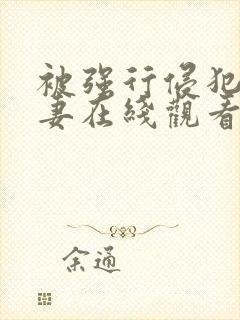 被强行侵犯
妻在綫觀看
余通